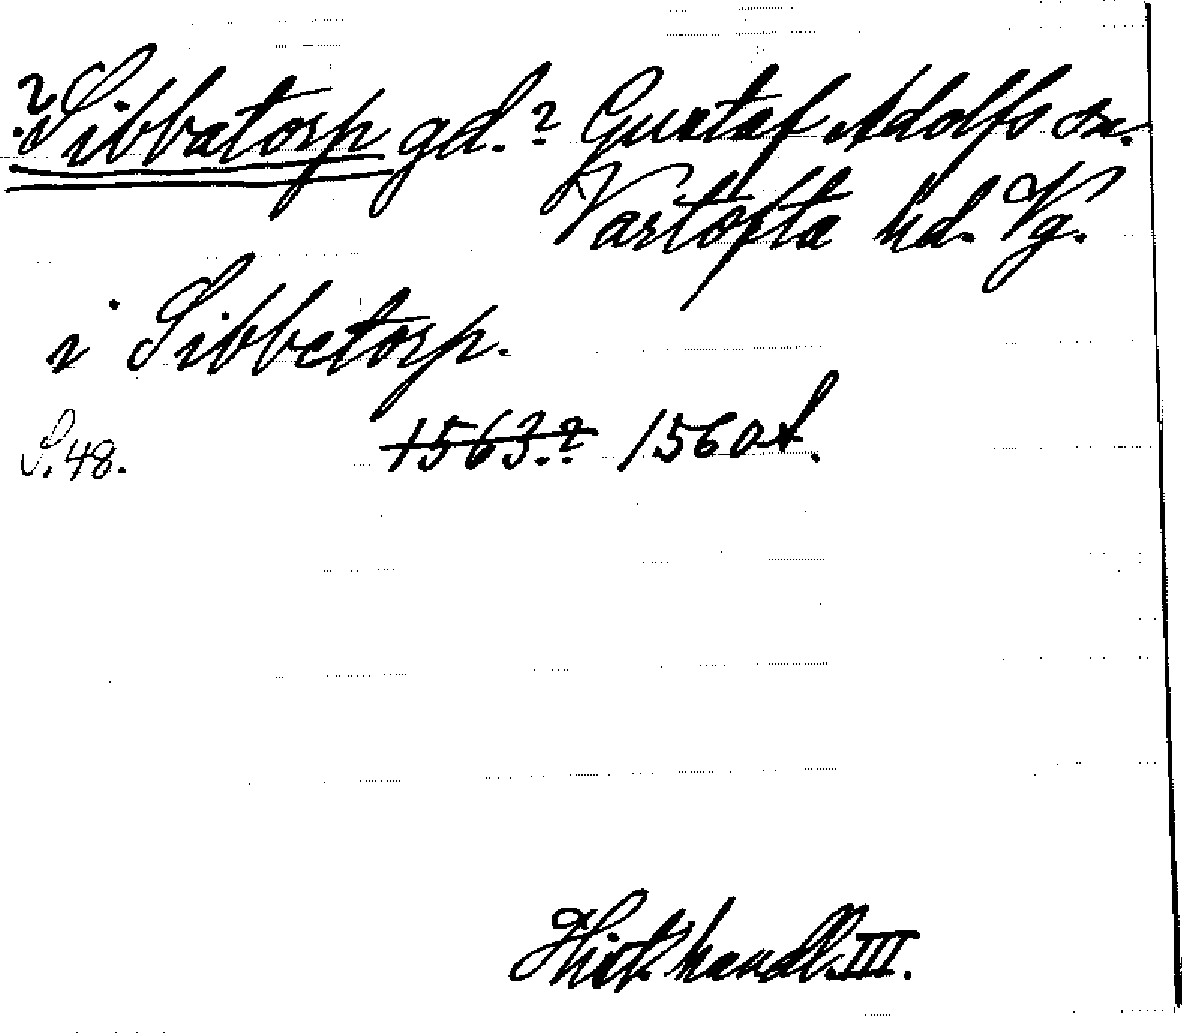 ? Sibbatorp gd.? Gustaf Adolfs sn.
Vartofta hd. Vg.
i Sibbetorp.
S. 48. 1563.? 1560 t.
Hist. handl. III.